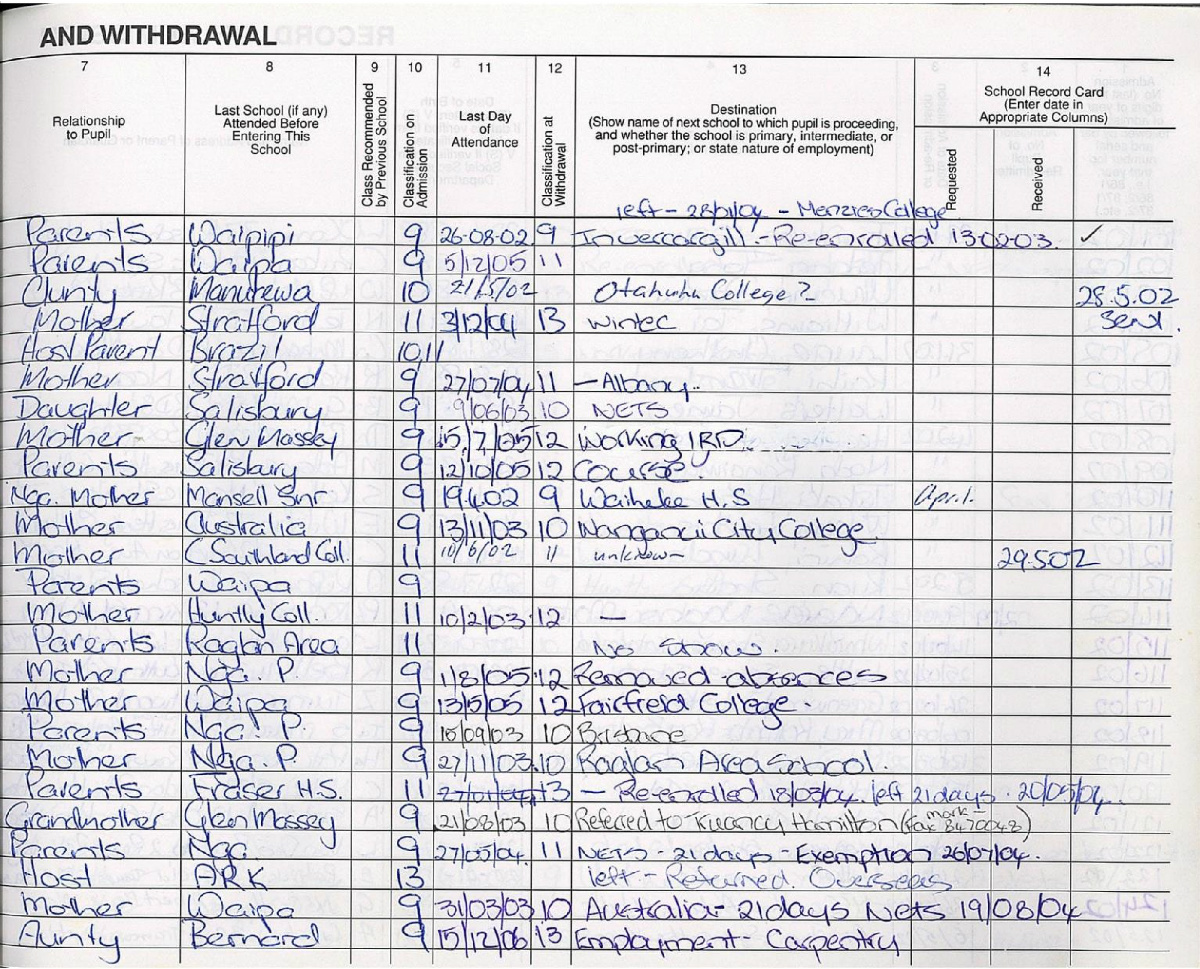 AND WITHDRAWAL
7 8 9 10 11 12 13 14
Relationship to Pupil
Last School (if any) Attended Before Entering This School
Class Recommended by Previous School
Classification on Admission
Last Day of Attendance
Classification at Withdrawal
Destination (Show name of next school to which pupil is proceeding, and whether the school is primary, intermediate, or post-primary; or state nature of employment)
School Record Card (Enter date in Appropriate Columns)
Requested
Received
left - 28/1/04 - Menzies College
Parents Waipipi 9 26-08-02 9 Invercargill - Re-enrolled 13-02-03. ✓
Parents Waipa 9 5/12/05 11
Aunty Manurewa 10 21/5/02 Otahuhu College? 28.5.02
Mother Stratford 11 3/12/04 13 Wintec Send.
Host Parent Brazil 10.11
Mother Stratford 9 27/07/04 11 - Albany.
Daughter Salisbury 9 9/06/03 10 NETS
Mother Glen Massey 9 15/7/05 12 Working IRD
Parents Salisbury 9 12/10/05 12 Course.
Nga. Mother Mansell Snr 9 19.4.02 9 Waiheke H.S April.
Mother Australia 9 13/11/03 10 Wanganui City College
Mother C Southland Coll. 11 10/6/02 11 unknown 29.5.02
Parents Waipa 9
Mother Huntly Coll. 11 10/2/03 12 -
Parents Raglan Area 11 No Show.
Mother Nga. P. 9 1/8/05 12 Removed-absences
Mother Waipa 9 13/5/05 12 Fairfield College.
Parents Nga. P 9 18/09/03 10 Brisbane
Mother Nga. P 9 27/11/03 10 Raglan Area School
Parents Fraser H.S. 11 13 - Re-enrolled 18/03/04. left 21 days - 20/05/04.
mark -
Grandmother Glen Massey 9 21/08/03 10 Referred to Truancy Hamilton (Fax 8470048)
Parents Nga. 9 27/05/04. 11 NETS - 21 days - Exemption 26/07/04.
Host ARK 13 left - Returned Overseas
Mother Waipa 9 31/03/03 10 Australia - 21 days Nets 19/08/04
Aunty Bernard 9 15/12/06 13 Employment - Carpentry